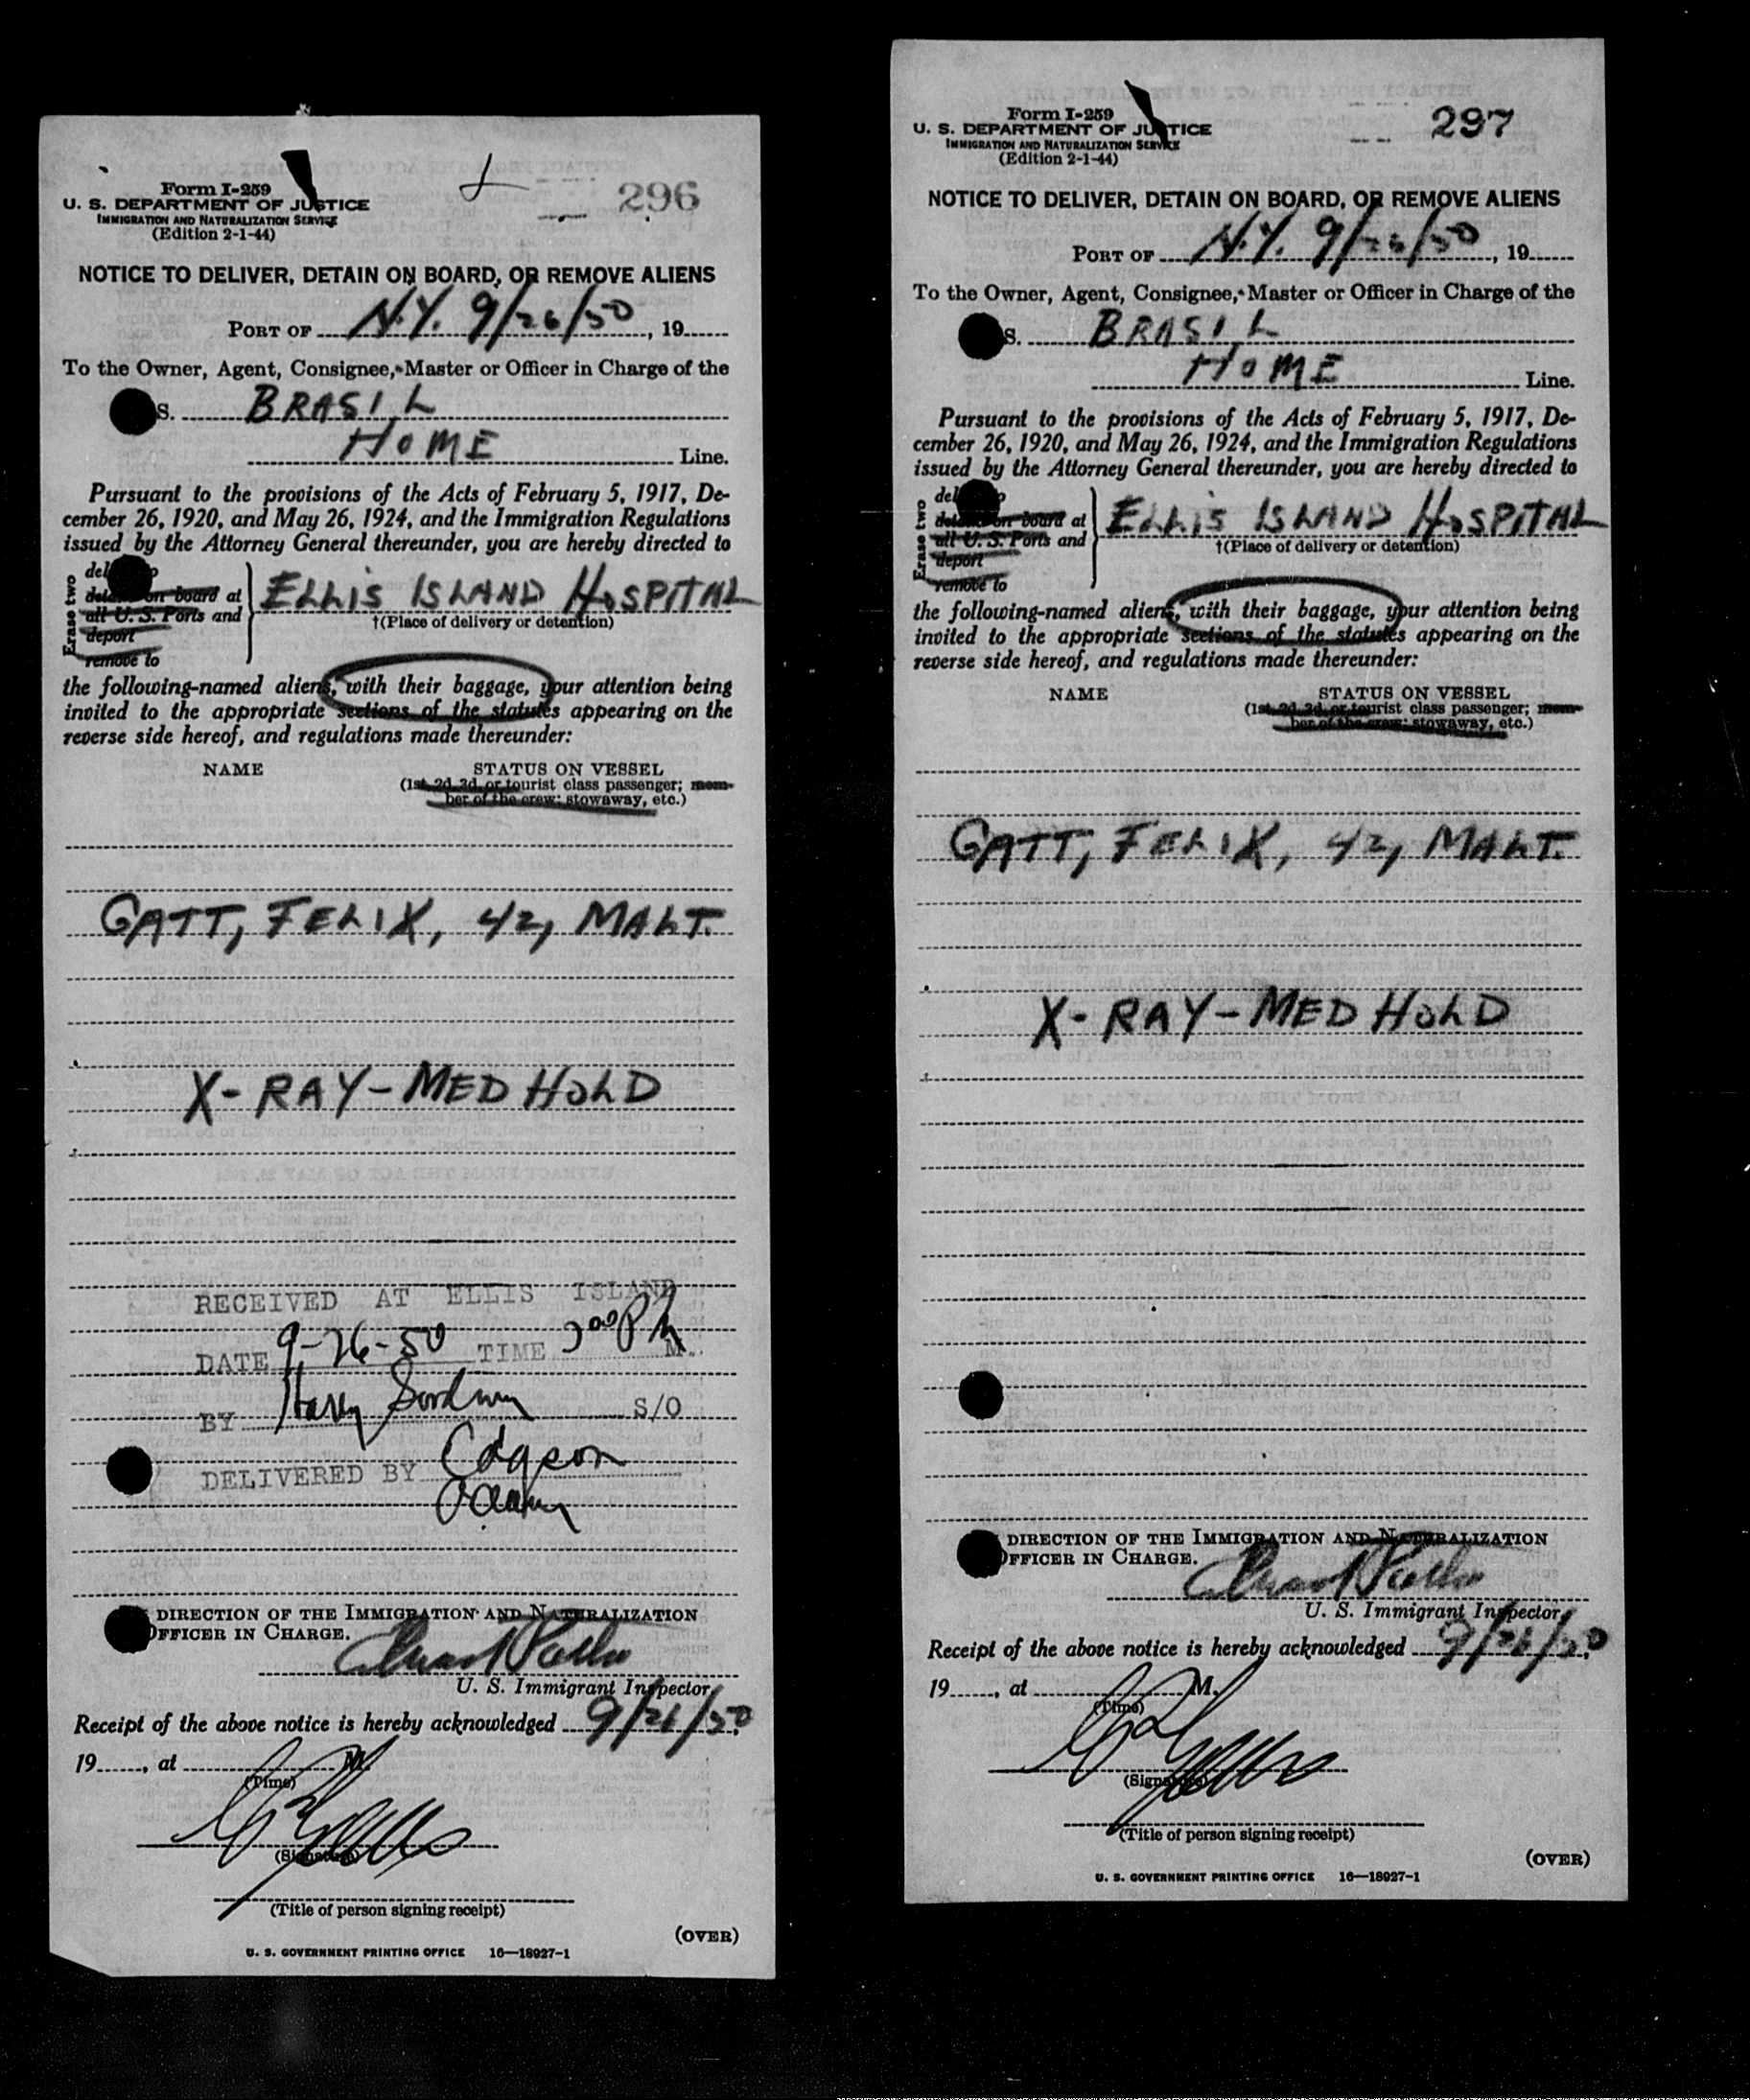 296
Form I-259
U. S. DEPARTMENT OF JUSTICE
IMMIGRATION AND NATURALIZATION SERVICE
(Edition 2-1-44)
NOTICE TO DELIVER, DETAIN ON BOARD, OR REMOVE ALIENS
PORT OF N.Y. 9/26/50, 19
To the Owner, Agent, Consignee, Master or Officer in Charge of the
S. BRASIL
HOME Line.
Pursuant to the provisions of the Acts of February 5, 1917, De-
cember 26, 1920, and May 26, 1924, and the Immigration Regulations
issued by the Attorney General thereunder, you are hereby directed to
Erase two
on board at
all U. S. Ports and
deport
remove to
ELLIS ISLAND HOSPITAL
†(Place of delivery or detention)
the following-named aliens, with their baggage, your attention being
invited to the appropriate sections of the statutes appearing on the
reverse side hereof, and regulations made thereunder:
NAME STATUS ON VESSEL
(1st, 2d, 3d, or tourist class passenger; mem-
ber of the crew; stowaway, etc.)
GATT, FELIX, 42, MALT.
X-RAY-MED HOLD
RECEIVED AT ELLIS ISLAND
DATE 9-26-50 TIME PM M.
BY Harry S/O
DELIVERED BY
DIRECTION OF THE IMMIGRATION AND NATURALIZATION
OFFICER IN CHARGE.
U. S. Immigrant Inspector
Receipt of the above notice is hereby acknowledged 9/26/50,
19, at M.
(Time)
(Signature)
(Title of person signing receipt)
(OVER)
U. S. GOVERNMENT PRINTING OFFICE 16—18927-1
297
Form I-259
U. S. DEPARTMENT OF JUSTICE
IMMIGRATION AND NATURALIZATION SERVICE
(Edition 2-1-44)
NOTICE TO DELIVER, DETAIN ON BOARD, OR REMOVE ALIENS
PORT OF N.Y. 9/26/50, 19
To the Owner, Agent, Consignee, Master or Officer in Charge of the
S. BRASIL
HOME Line.
Pursuant to the provisions of the Acts of February 5, 1917, De-
cember 26, 1920, and May 26, 1924, and the Immigration Regulations
issued by the Attorney General thereunder, you are hereby directed to
Erase two
on board at
all U. S. Ports and
deport
remove to
ELLIS ISLAND HOSPITAL
†(Place of delivery or detention)
the following-named aliens, with their baggage, your attention being
invited to the appropriate sections of the statutes appearing on the
reverse side hereof, and regulations made thereunder:
NAME STATUS ON VESSEL
(1st, 2d, 3d, or tourist class passenger; mem-
ber of the crew; stowaway, etc.)
GATT, FELIX, 42, MALT.
X-RAY-MED HOLD
DIRECTION OF THE IMMIGRATION AND NATURALIZATION
OFFICER IN CHARGE.
U. S. Immigrant Inspector
Receipt of the above notice is hereby acknowledged 9/26/50,
19, at M.
(Time)
(Signature)
(Title of person signing receipt)
(OVER)
U. S. GOVERNMENT PRINTING OFFICE 16—18927-1